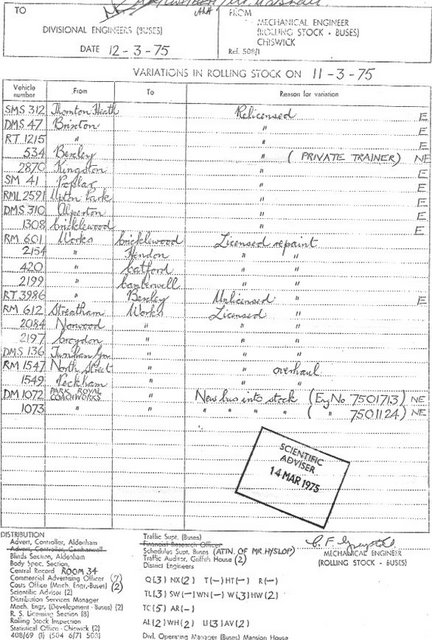 TO
FROM
DIVISIONAL ENGINEERS (BUSES)
MECHANICAL ENGINEER
(ROLLING STOCK - BUSES)
CHISWICK
DATE 12-3-75
Ref. 508/1
VARIATIONS IN ROLLING STOCK ON 11-3-75
Vehicle number From To Reason for variation
SMS 312 Thornton Heath Relicensed E
DMS 47 Brixton " E
RT 1215 " " E
534 Bexley " (PRIVATE TRAINER) NE
2870 Kingston " E
SM 41 Poplar " E
RML 2591 Upton Park " E
DMS 310 Alperton " E
1308 Cricklewood " E
RM 601 Works Cricklewood Licensed repaint
2154 " Hendon " "
420 " Catford " "
2199 " Camberwell " "
RT 3986 " Bexley Unlicensed " E
RM 612 Streatham Works Licensed "
2084 Norwood " " "
2197 Croydon " " "
DMS 136 Turnham Grn " " "
RM 1547 North Street " " overhaul
1549 Peckham " " "
DM 1072 PARK ROYAL COACHWORKS " New bus into stock (Eng No 7501713) NE
1073 " " " " " " ( " 7501124) NE
SCIENTIFIC
ADVISER
14 MAR 1975
DISTRIBUTION
Advert. Controller, Aldenham
Advert. Controller, Camberwell
Blinds Section, Aldenham
Body Spec. Section,
Central Record ROOM 34
Commercial Advertising Officer
Costs Office (Mech. Engr.-Buses) (2)
Scientific Adviser (2)
Distribution Services Manager
Mech. Engr. (Development - Buses) (2)
R. S. Licensing Section (8)
Rolling Stock Inspection
Statistical Office - Chiswick (2)
408/69 (1) (504 6/71 503)
Traffic Supt. (Buses)
Financial Research Officer
Schedules Supt. (Buses) (ATTN. OF MR HYSLOP)
Traffic Auditor, Griffith House (2)
District Engineers
Q(3) NX(2) T(-) HT(-) R(-)
TL(3) SW(-) WN(-) W(3) HW(2)
TC(5) AR(-)
AL(2) WH(2) U(3) AV(2)
Divl. Operating Manager (Buses) Mansion House
MECHANICAL ENGINEER
(ROLLING STOCK - BUSES)